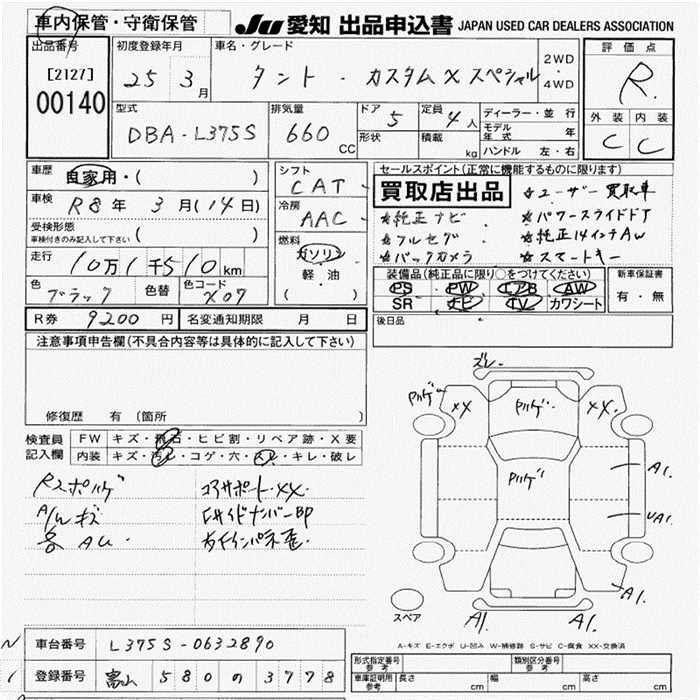 車内保管・守衛保管 JU 愛知 出品申込書 JAPAN USED CAR DEALERS ASSOCIATION
出品番号 初度登録年月 車名・グレード 2WD 評価点
[2127] 25 3月 タント・カスタムXスペシャル ・4WD R.
00140
型式 排気量 ドア 5 定員 4人 ディーラー・並行 外装 内装
DBA-L375S 660 CC 形状 積載 kg モデル年式 年 C C
ハンドル 左・右
車歴 自家用・( ) シフト セールスポイント(正常に機能するものに限ります)
CAT 買取店出品 ★ユーザー買取車
車検 R8年 3月(14日) 冷房 ★純正ナビ ★パワースライドドア
受検形態 AAC ★フルセグ ★純正14インチAW
車検付きのみ記入して下さい ( ) 燃料 ★バックカメラ ★スマートキー
走行 10万1千510km ガソリン 装備品(純正品に限り○をつけてください) 新車保証書
軽・油 PS PW エアB AW 有・無
色 ブラック 色替 色コード X07 ( ) SR ナビ TV カワシート
R券 9200円 名変通知期限 月 日 後日品
注意事項申告欄(不具合内容等は具体的に記入して下さい)
修復歴 有 (箇所
ズレ
XX Pハゲ XX
Pハゲ
検査員 FW キズ・飛石・ヒビ割・リペア跡・X要
記入欄 内装 キズ・汚レ・コゲ・穴・スレ・キレ・破レ
A1.
コアサポート・XX
A/Wキズ
UA1.
A1.
スペア A1. A1.
A-キズ E-エクボ U-凹み W-補修跡 S-サビ C-腐食 XX-交換済
車台番号 L375S-0632890
登録番号 富山 580の3778
形式指定番号 参考 類別区分番号 参考
車庫証明用 参考 長さ cm 幅 cm 高さ cm